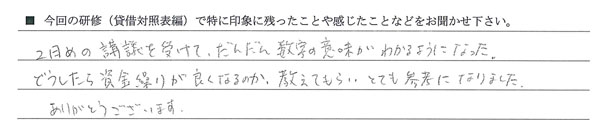 ■ 今回の研修（貸借対照表編）で特に印象に残ったことや感じたことなどをお聞かせ下さい。
2回めの講議を受けて、だんだん数字の意味がわかるようになった。
どうしたら資金繰りが良くなるのか、教えてもらい とても参考になりました。
ありがとうございます.